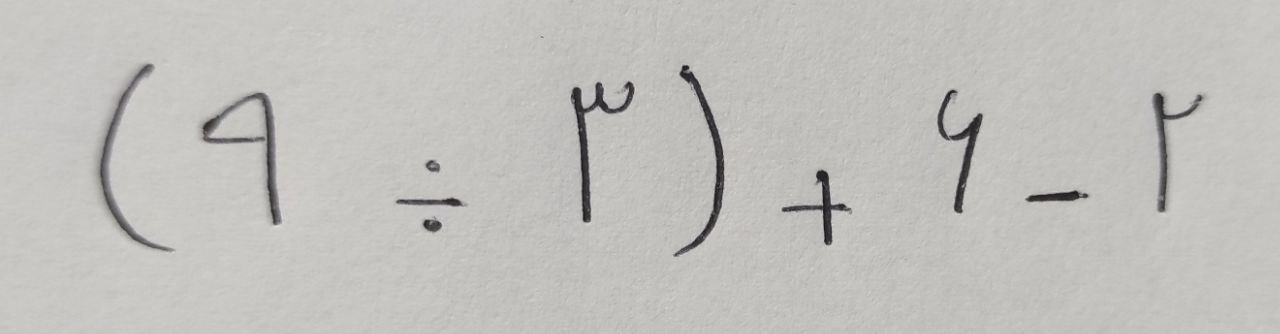 (۹ ÷ ۳) + ۶ - ۲